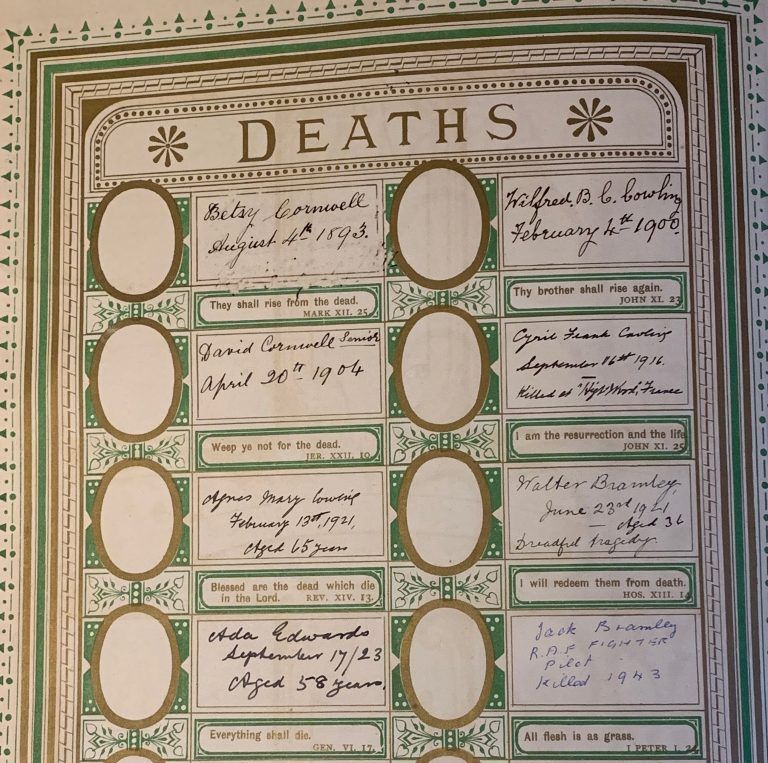 DEATHS
Betsy Cornwell
August 4th 1893.
They shall rise from the dead.
MARK XII. 25
Wilfred. B. C. Cowling
February 4th 1900.
Thy brother shall rise again.
JOHN XI. 23
David Cornwell Senior
April 20th 1904
Weep ye not for the dead.
JER. XXII. 10
Cyril Frank Cowling
September 16th 1916.
Killed at "High Wood", France
I am the resurrection and the life
JOHN XI. 25
Agnes Mary Cowling
February 13th, 1921,
Aged 65 years
Blessed are the dead which die
in the Lord. REV. XIV. 13.
Walter Bramley,
June 23rd 1921
— Aged 36
Dreadful tragedy.
I will redeem them from death.
HOS. XIII. 14
Ada Edwards
September 17/23
Aged 58 years.
Everything shall die.
GEN. VI. 17.
Jack Bramley
R.A.F FIGHTER
Pilot
Killed 1943
All flesh is as grass.
I PETER I. 24